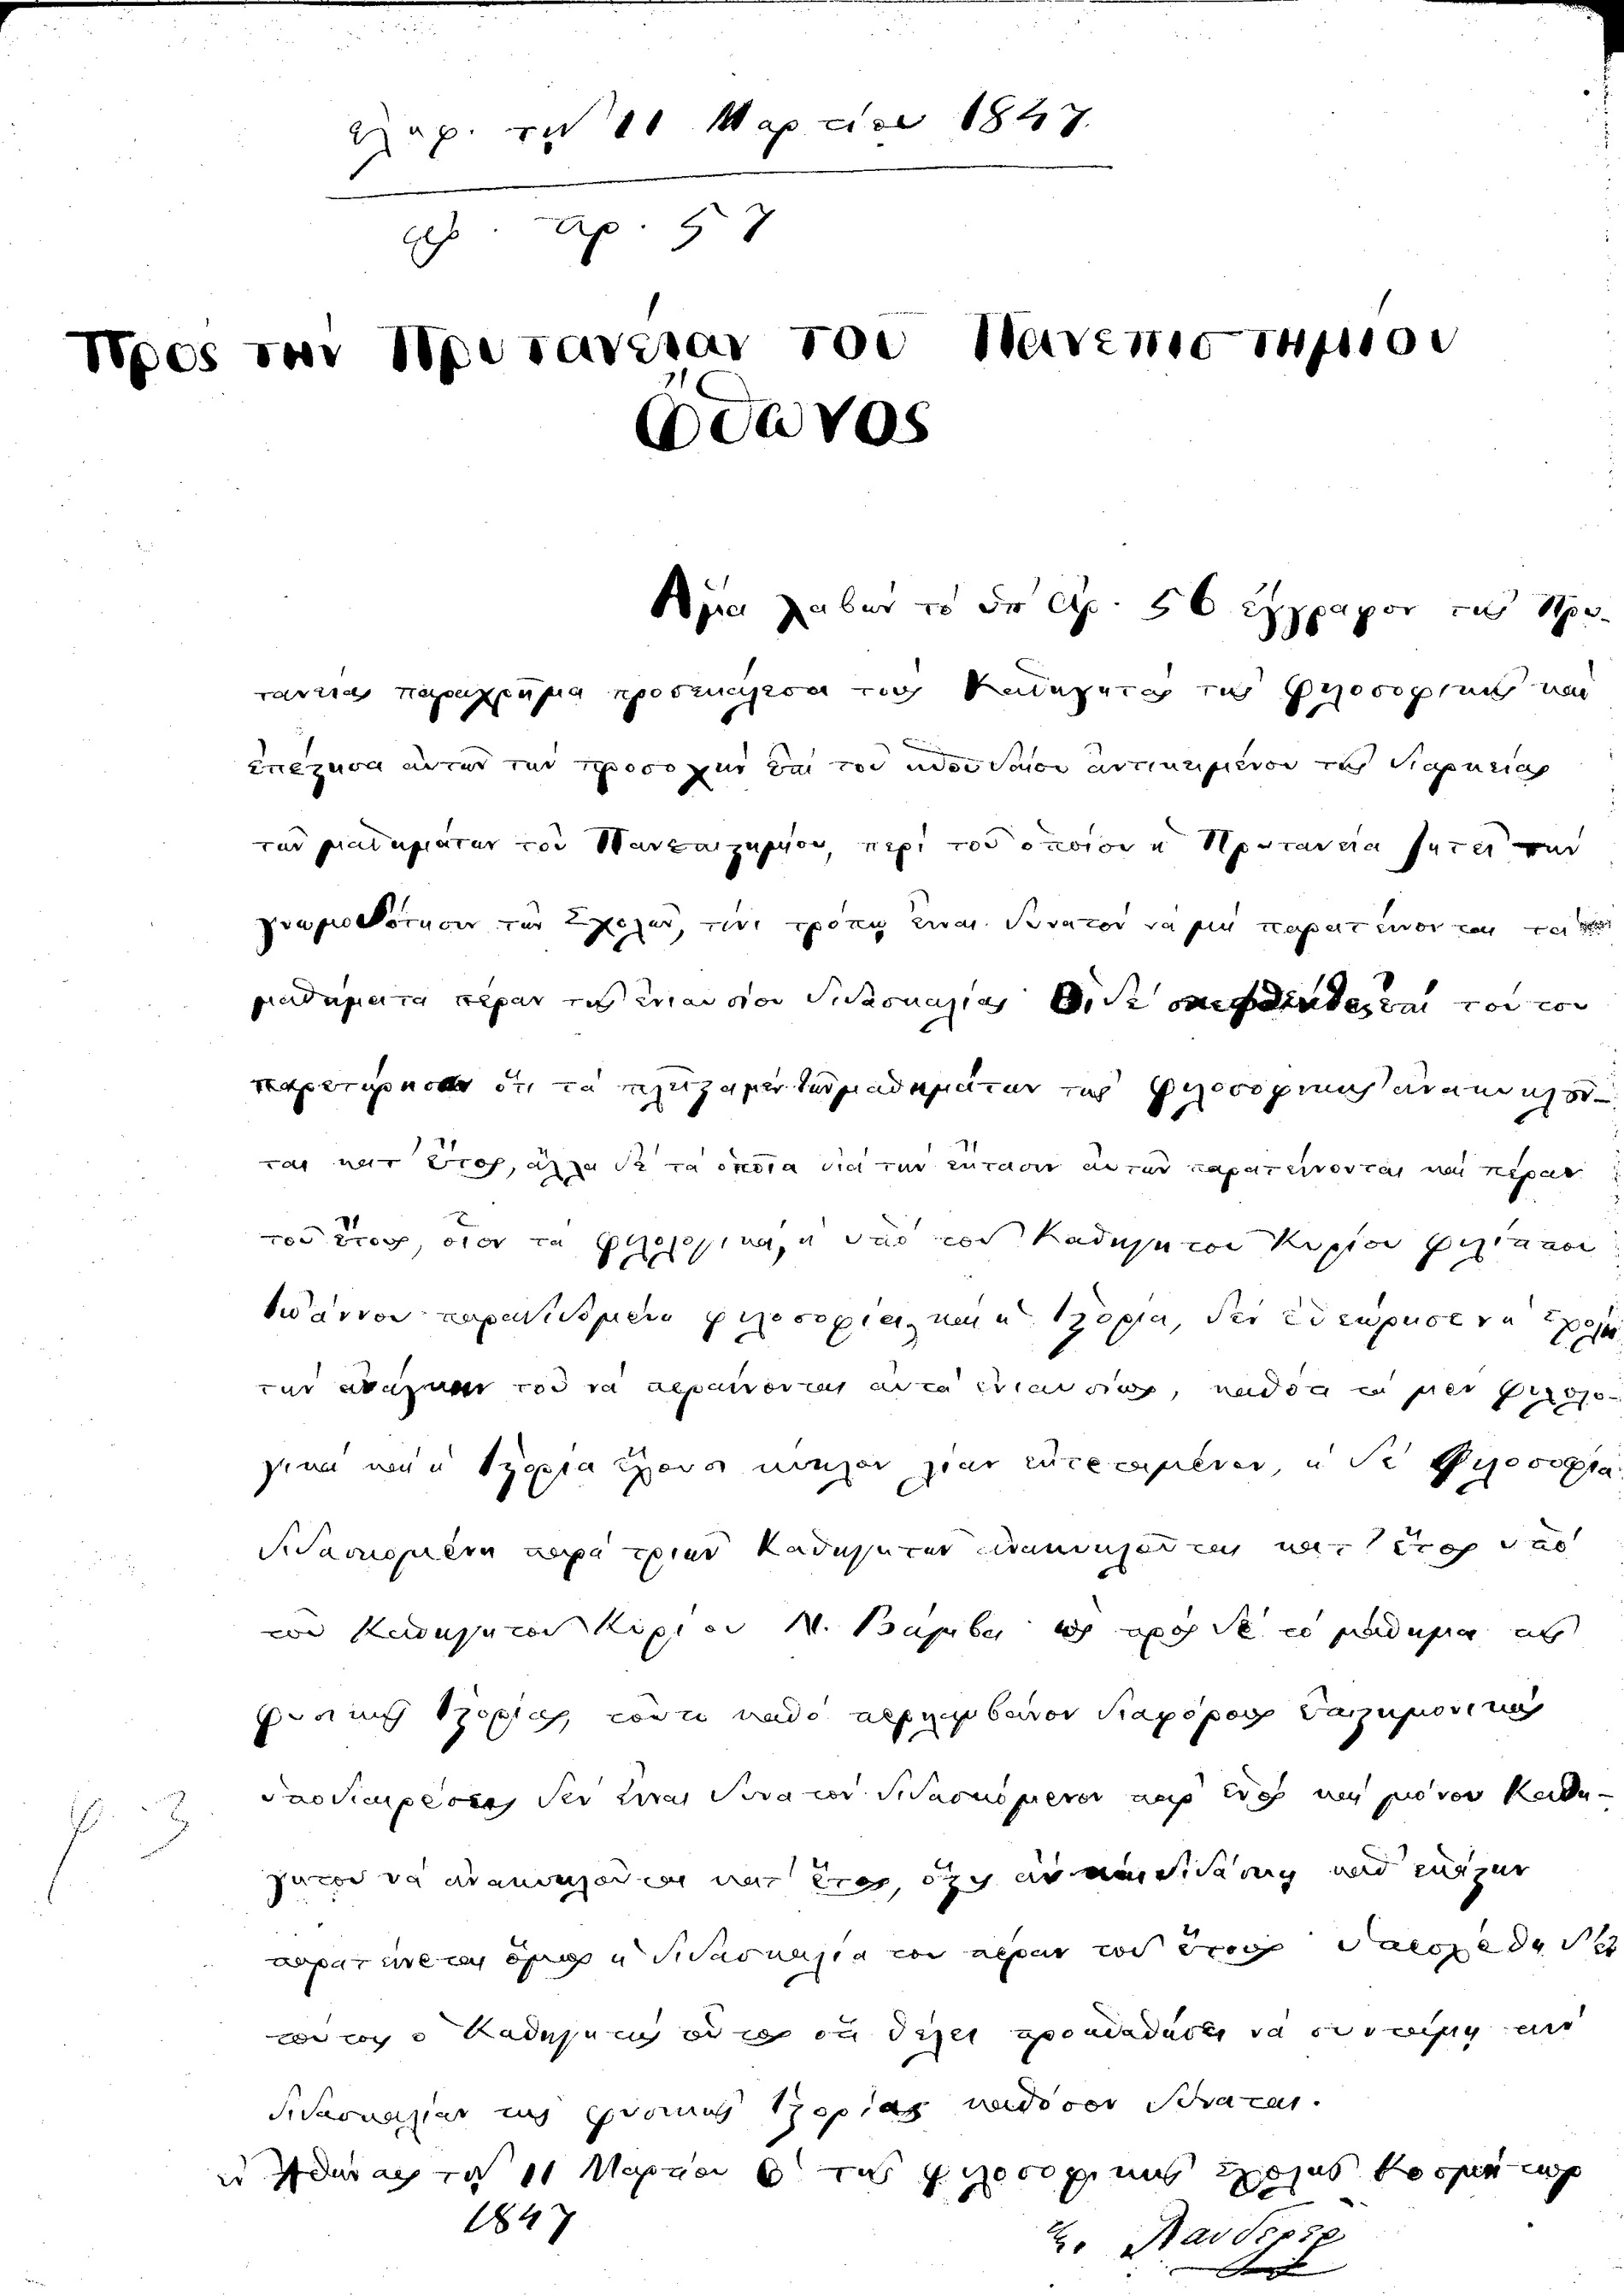 ἐλήφ. τῇ 11 Μαρτίου 1847.
ἀρ. 57
Πρὸς τὴν Πρυτανείαν τοῦ Πανεπιστημίου
Ὄθωνος
Ἅμα λαβὼν τὸ ὑπ' ἀρ. 56 ἔγγραφον τῆς Πρυ-
τανείας παραχρῆμα προσεκάλεσα τοὺς Καθηγητὰς τῆς Φιλοσοφικῆς καὶ
ἐπέστησα αὐτῶν τὴν προσοχὴν ἐπὶ τοῦ σπουδαίου ἀντικειμένου τῆς διαρκείας
τῶν μαθημάτων τοῦ Πανεπιστημίου, περὶ τοῦ ὁποίου ἡ Πρυτανεία ζητεῖ τὴν
γνωμοδότησιν τῶν Σχολῶν, τίνι τρόπῳ εἶναι δυνατὸν νὰ μὴ παρατείνονται τὰ
μαθήματα πέραν τῆς ἐνιαυσίου διδασκαλίας. Οἱ δὲ σκεφθέντες ἐπὶ τούτου
παρετήρησαν ὅτι τὰ πλεῖστα μὲν τῶν μαθημάτων τῆς Φιλοσοφικῆς ἀνακυκλοῦ-
ται κατ' ἔτος, ἄλλα δὲ τὰ ὁποῖα διὰ τὴν ἔκτασιν αὐτῶν παρατείνονται καὶ πέραν
τοῦ ἔτους, οἷον τὰ φιλολογικά, ἡ ὑπὸ τοῦ Καθηγητοῦ Κυρίου Φιλίππου
Ἰωάννου παραδιδομένη φιλοσοφία, καὶ ἡ Ἱστορία, δὲν ἐθεώρησεν ἡ Σχολὴ
τὴν ἀνάγκην τοῦ νὰ περαίνονται αὐτὰ ἐνιαυσίως, καθότι τὰ μὲν φιλολο-
γικὰ καὶ ἡ Ἱστορία ἔχουσι κύκλον λίαν ἐκτεταμένον, ἡ δὲ Φιλοσοφία
διδασκομένη παρὰ τριῶν Καθηγητῶν ἀνακυκλοῦται κατ' ἔτος ὑπὸ
τοῦ Καθηγητοῦ Κυρίου Ν. Βάμβα· ὡς πρὸς δὲ τὸ μάθημα τῆς
φυσικῆς Ἱστορίας, τοῦτο καθὸ περιλαμβάνον διαφόρους ἐπιστημονικὰς
ὑποδιαιρέσεις δὲν εἶναι δυνατὸν διδασκόμενον παρ' ἑνὸς καὶ μόνου Καθη-
γητοῦ νὰ ἀνακυκλοῦται κατ' ἔτος, ὅστις ἂν καὶ διδάσκῃ καθ' ἑκάστην
παρατείνεται ὅμως ἡ διδασκαλία του πέραν τοῦ ἔτους· ὑπεσχέθη δὲ
τούτοις ὁ Καθηγητὴς οὗτος ὅτι θέλει προσπαθήσει νὰ συντάμῃ τὴν
διδασκαλίαν τῆς φυσικῆς Ἱστορίας καθόσον δύναται.
ἐν Ἀθήναις τῇ 11 Μαρτίου Ὁ τῆς φιλοσοφικῆς Σχολῆς Κοσμήτωρ
1847